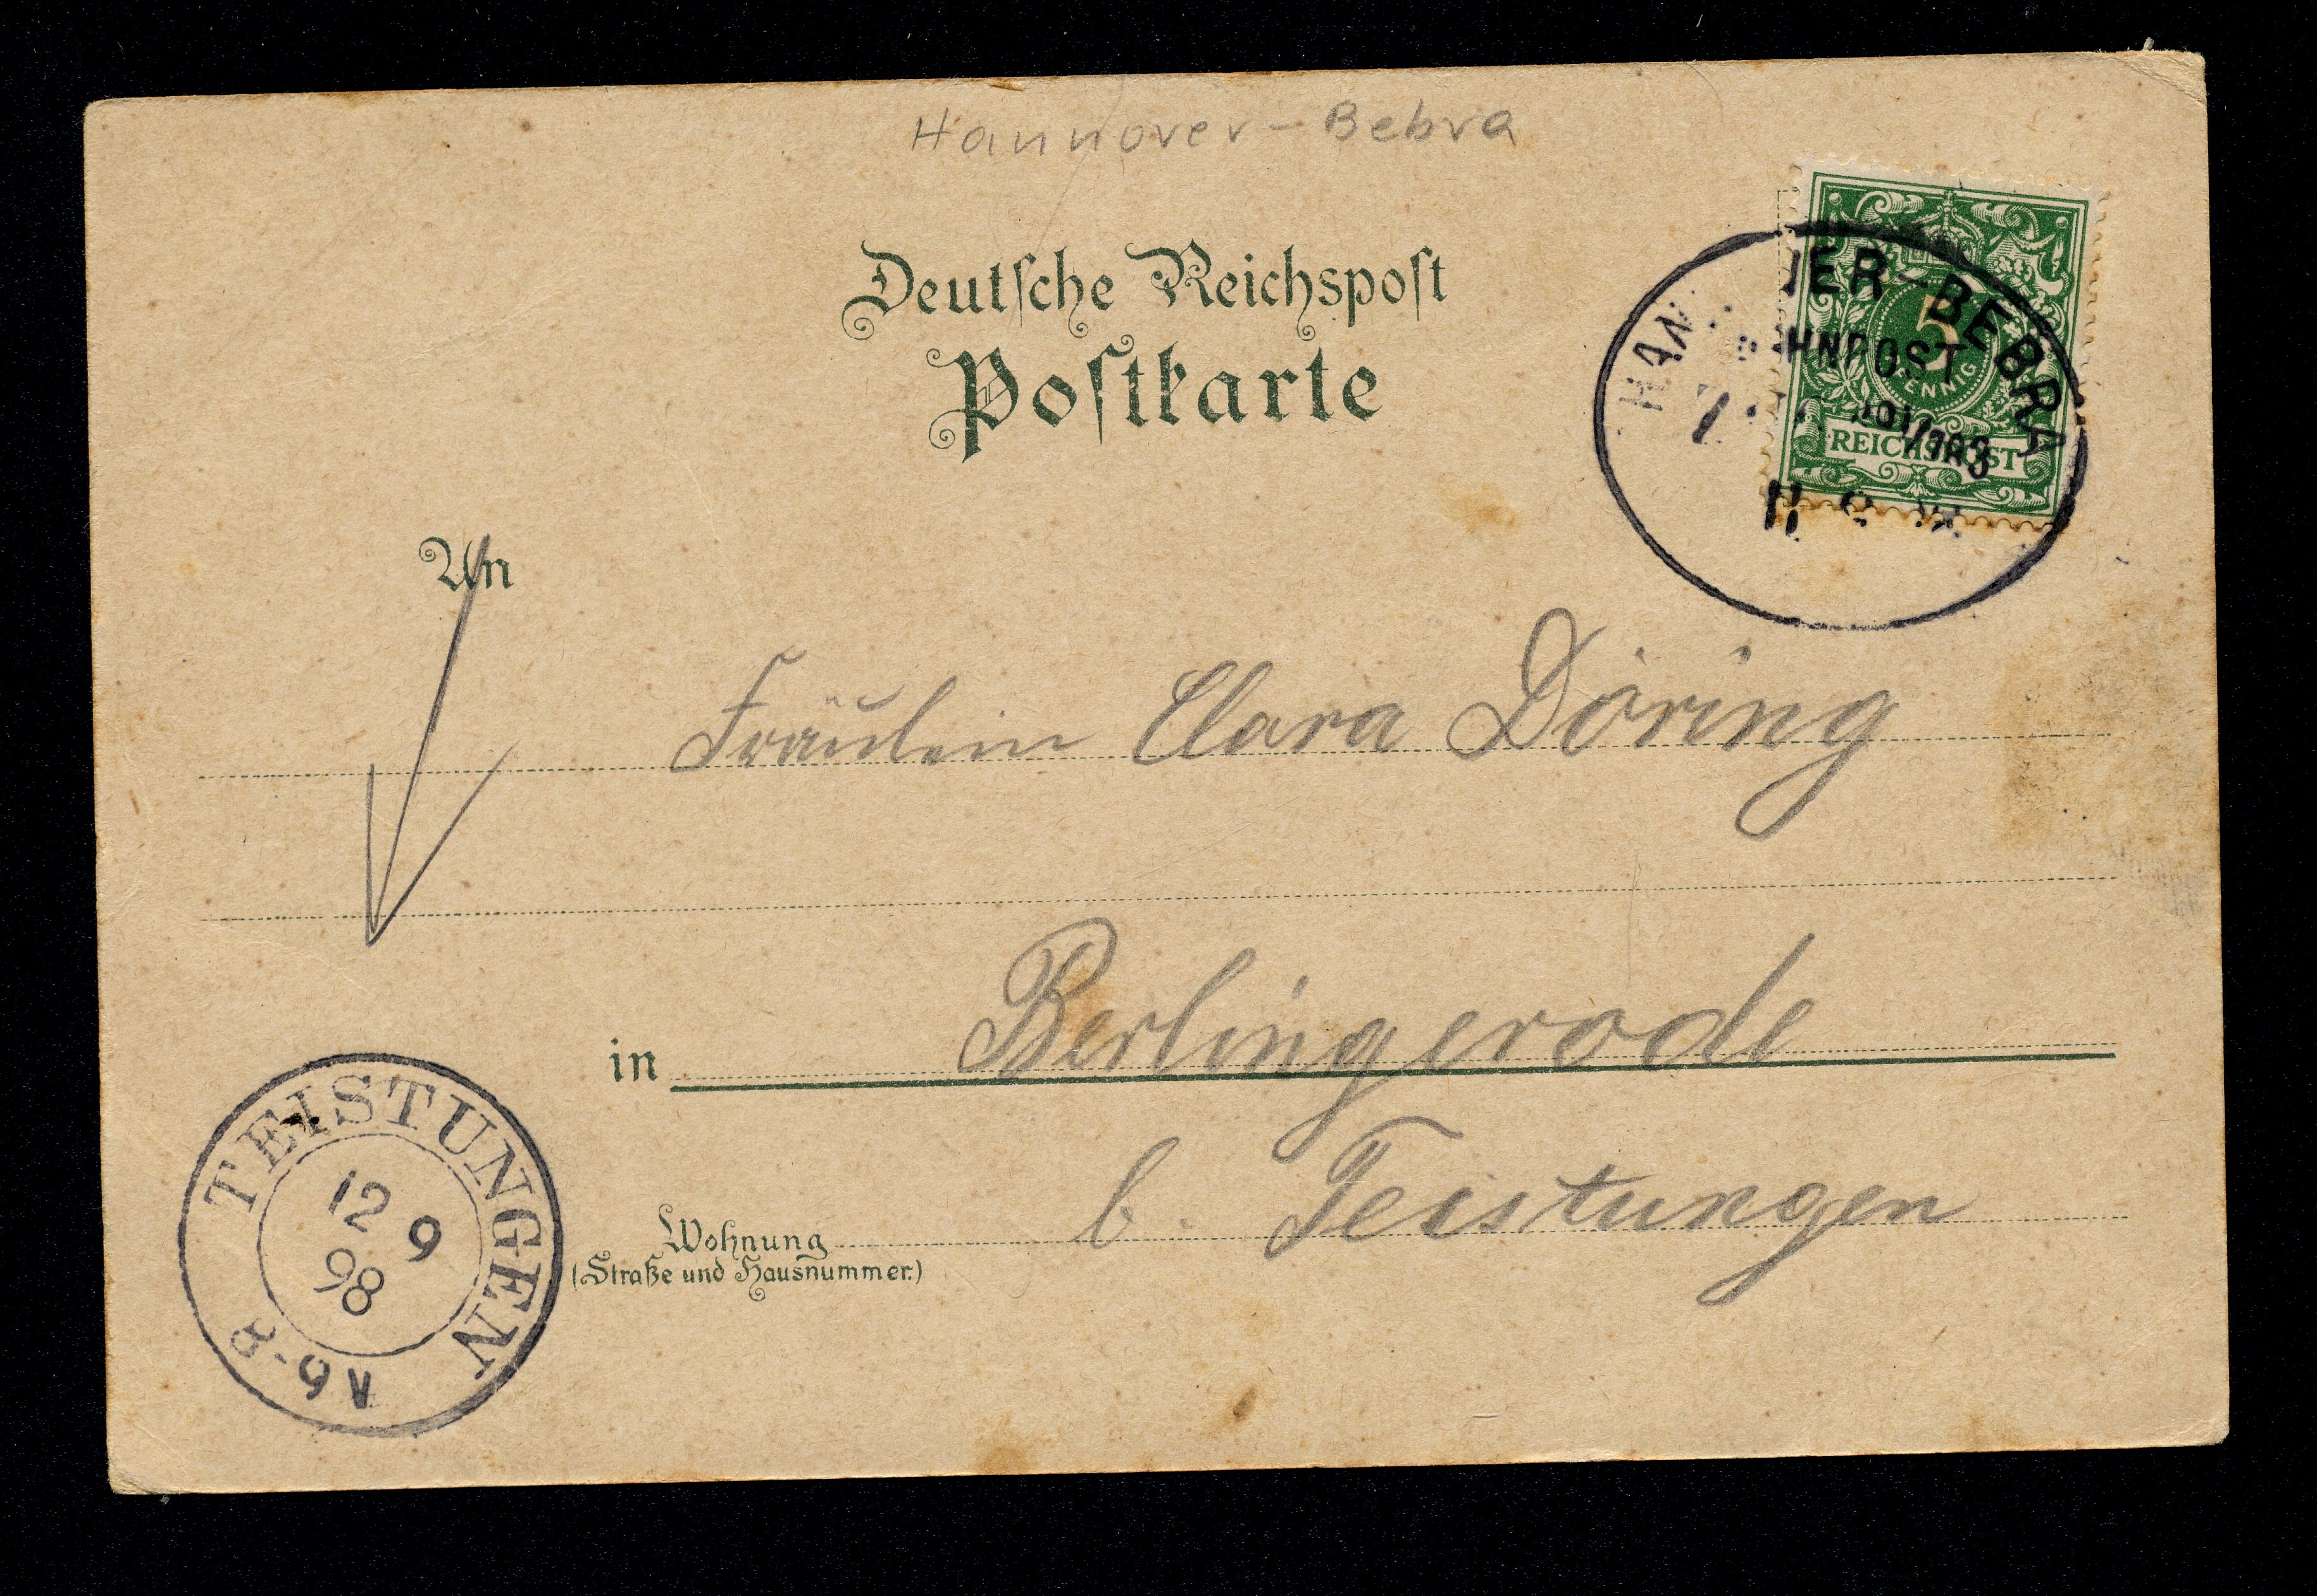 Hannover-Bebra
Deutsche Reichspost
Postkarte
5
PFENNIG
REICHSPOST
HAN VER-BEBRA
HNPOST
An
Fräulein Clara Döring
in Berlingerode
b. Teistungen
Wohnung
(Straße und Hausnummer.)
TEISTUNGEN
12 9
98
8-9V